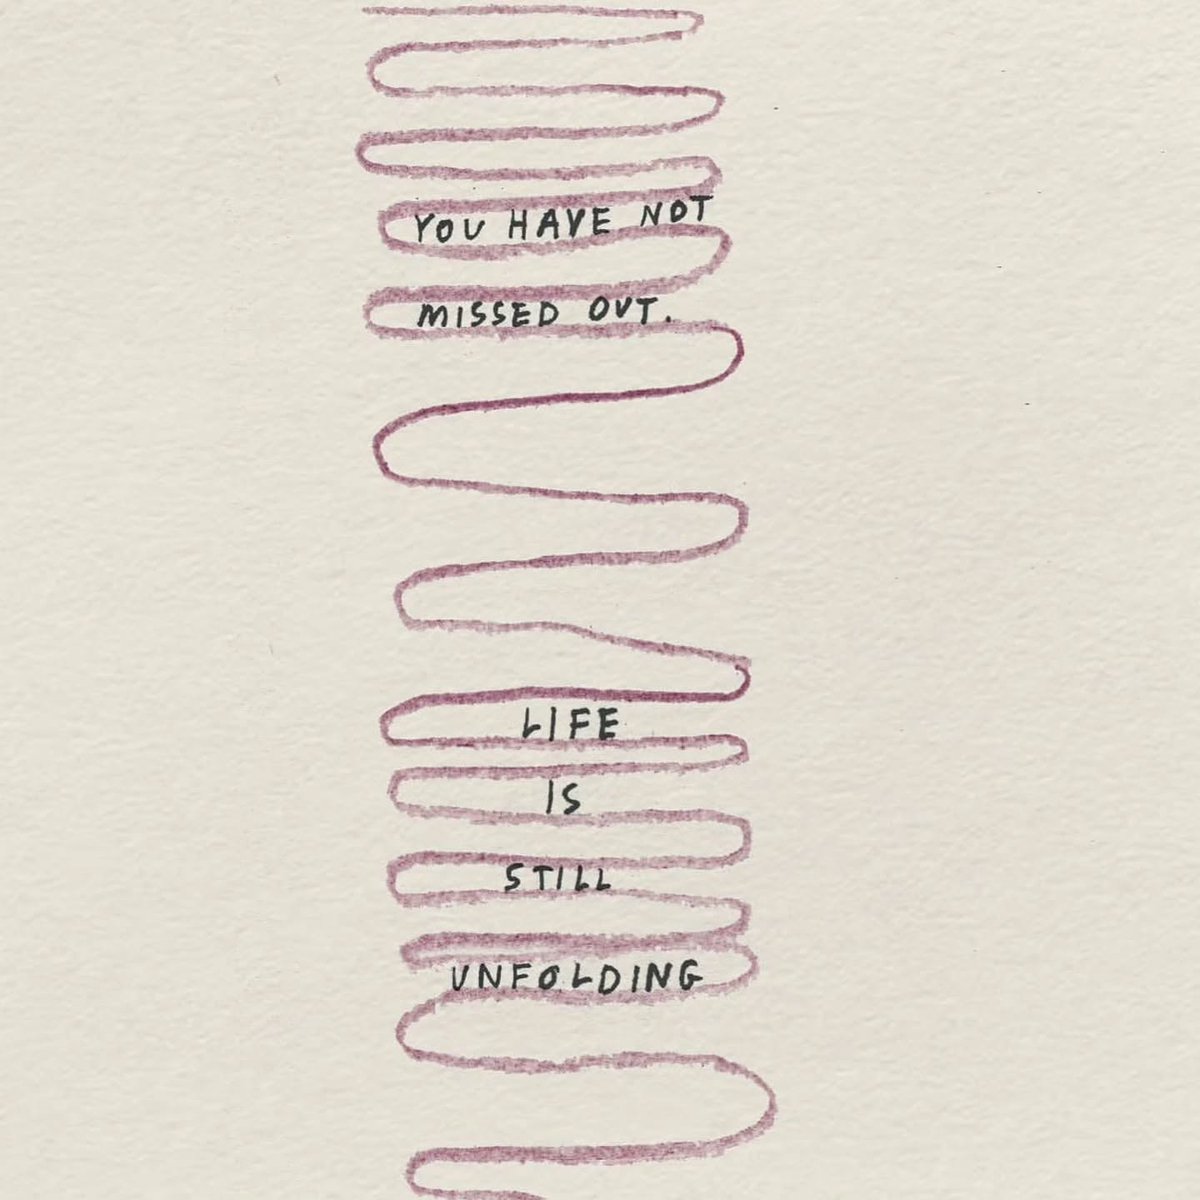 YOU HAVE NOT
MISSED OUT.
LIFE
IS
STILL
UNFOLDING